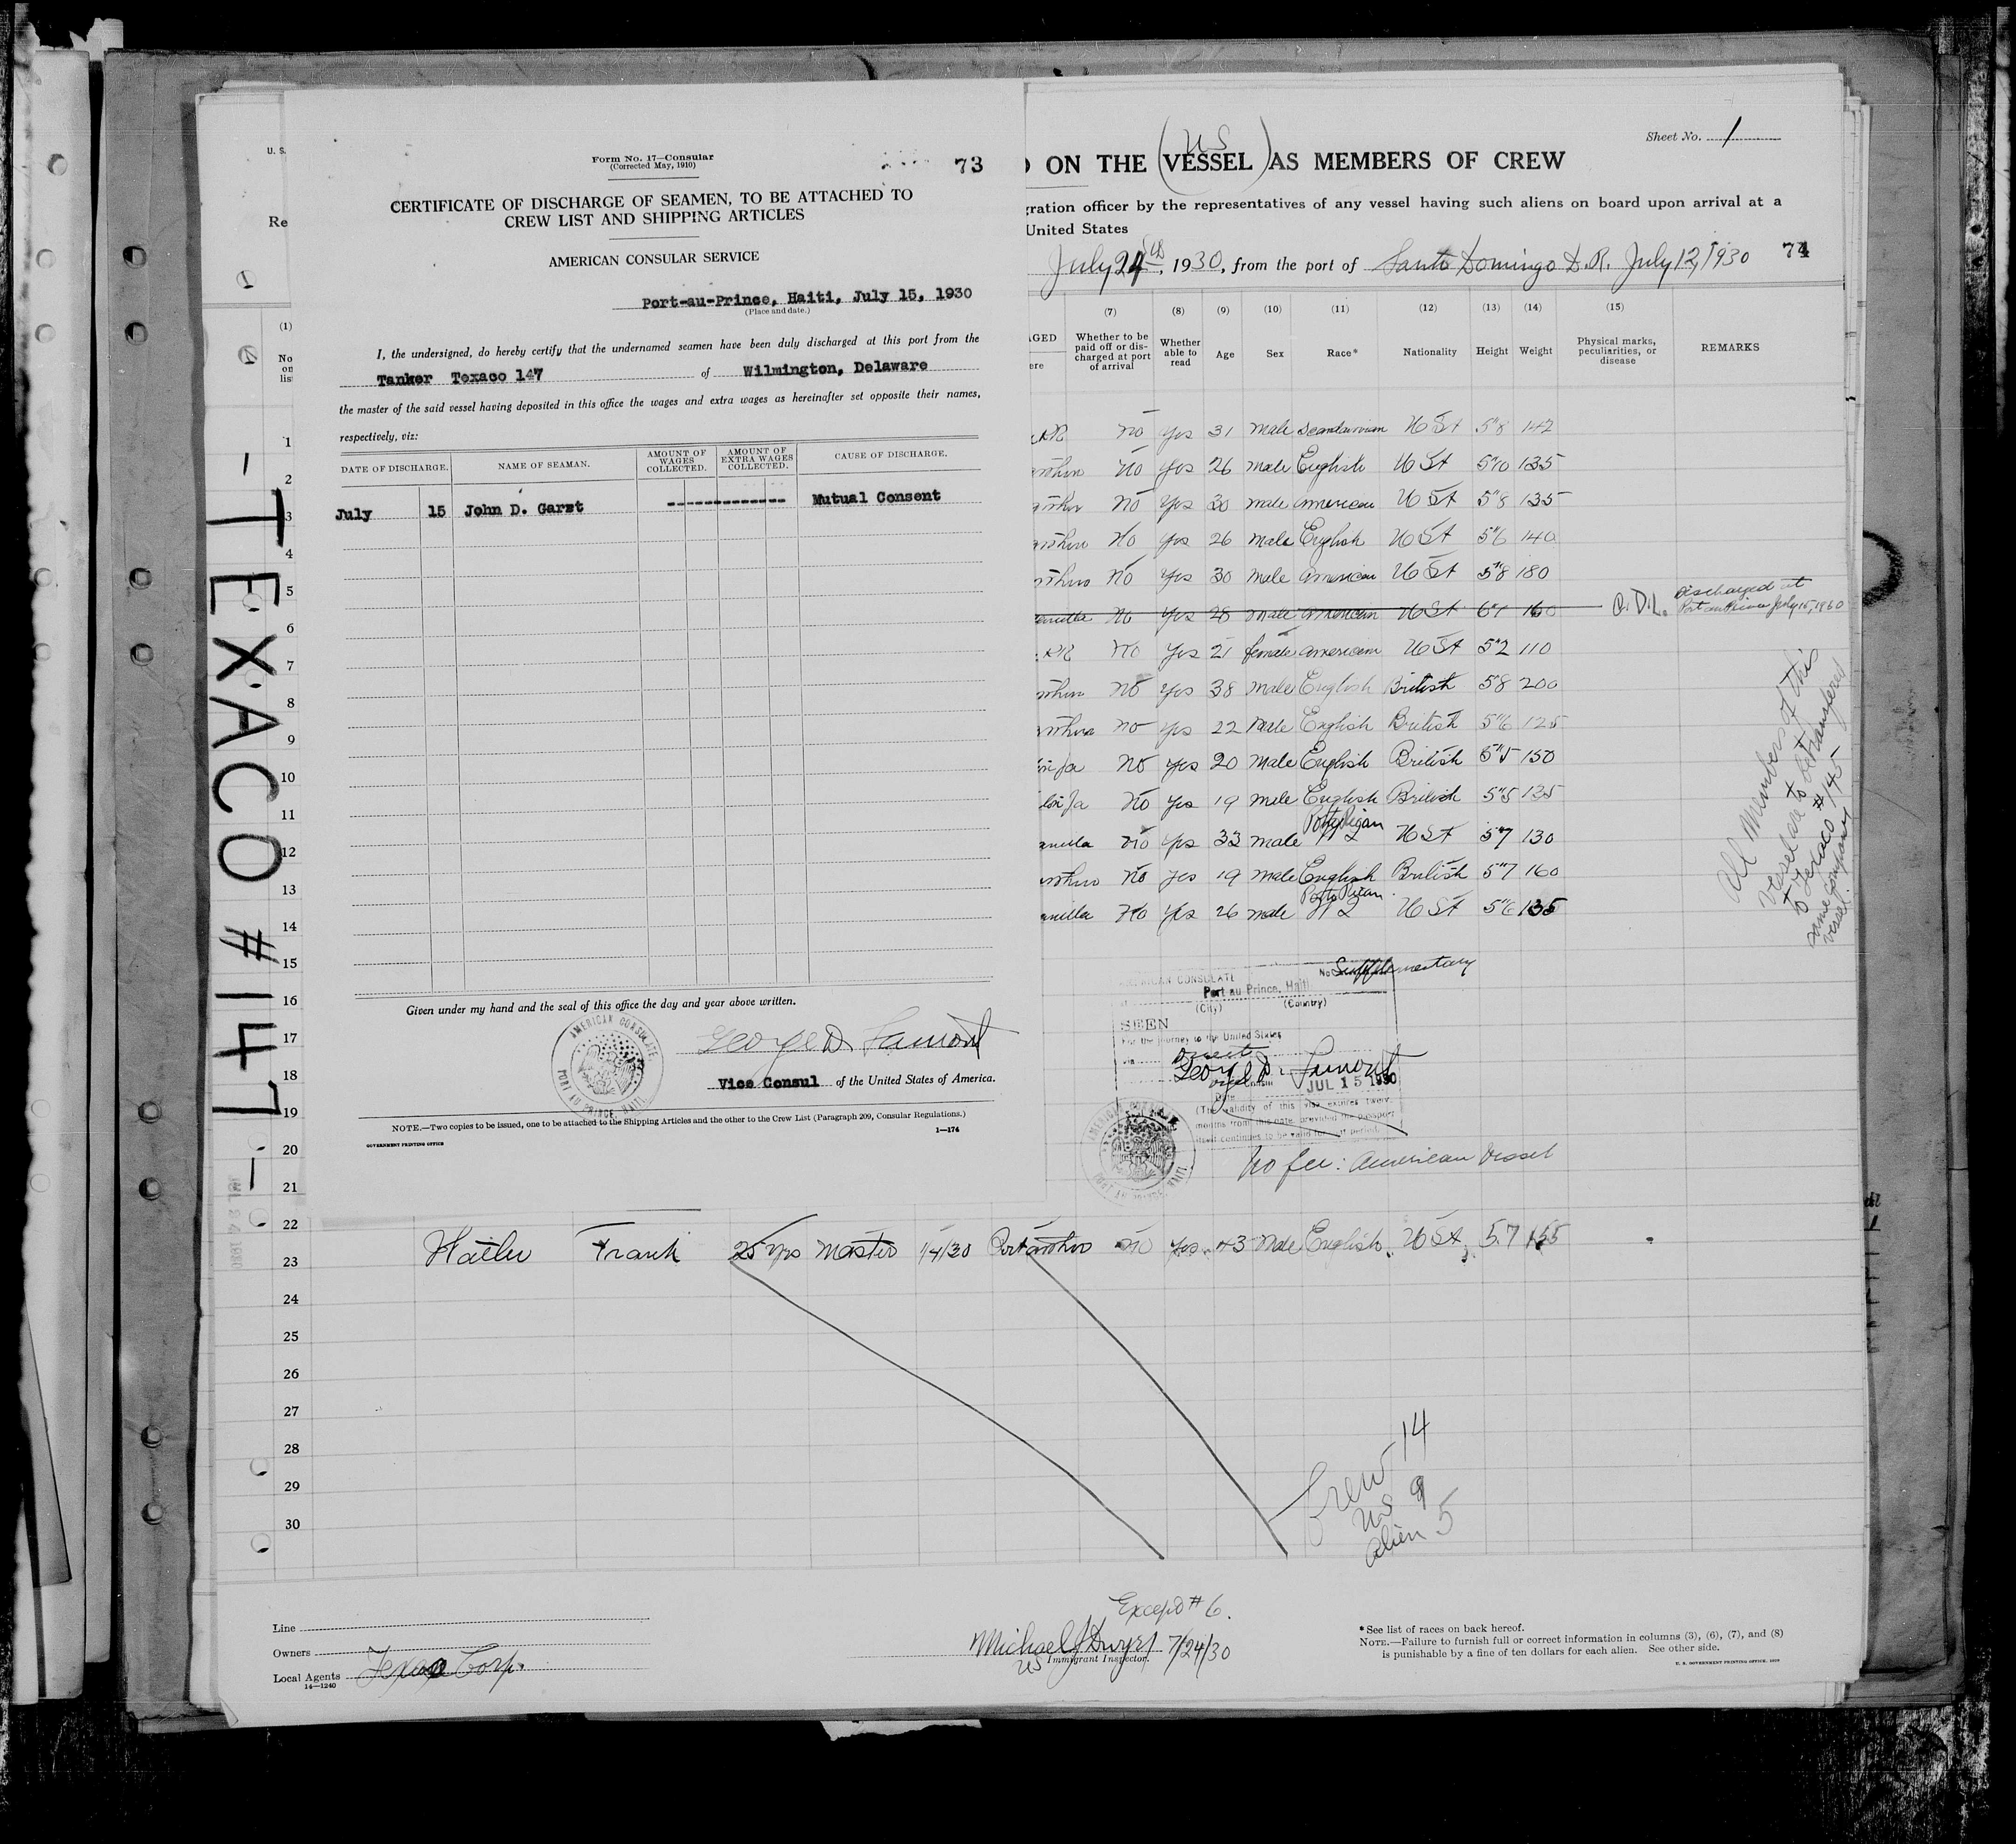 TEXACO #147
U. S.
Re
(1)
1
2
3
4
5
6
7
8
9
10
11
12
13
14
15
16
17
18
19
20
21
22
23
24
25
26
27
28
29
30
Form No. 17—Consular
(Corrected May, 1910)
73
CERTIFICATE OF DISCHARGE OF SEAMEN, TO BE ATTACHED TO
CREW LIST AND SHIPPING ARTICLES
AMERICAN CONSULAR SERVICE
Port-au-Prince, Haiti, July 15, 1930
(Place and date.)
I, the undersigned, do hereby certify that the undernamed seamen have been duly discharged at this port from the
Tanker Texaco 147 of Wilmington, Delaware
the master of the said vessel having deposited in this office the wages and extra wages as hereinafter set opposite their names,
respectively, viz:
DATE OF DISCHARGE. NAME OF SEAMAN. AMOUNT OF WAGES COLLECTED. AMOUNT OF EXTRA WAGES COLLECTED. CAUSE OF DISCHARGE.
July 15 John D. Garst ------------- Mutual Consent
Given under my hand and the seal of this office the day and year above written.
AMERICAN CONSULATE. PORT AU PRINCE, HAITI.
George D. Lamont
Vice Consul of the United States of America.
NOTE.—Two copies to be issued, one to be attached to the Shipping Articles and the other to the Crew List (Paragraph 209, Consular Regulations.)
GOVERNMENT PRINTING OFFICE 1—174
Sheet No. 1
US
ON THE (VESSEL) AS MEMBERS OF CREW
gration officer by the representatives of any vessel having such aliens on board upon arrival at a
United States
July 24th, 1930, from the port of Santo Domingo D.R. July 12, 1930 74
(7) (8) (9) (10) (11) (12) (13) (14) (15)
AGED Whether to be paid off or discharged at port of arrival Whether able to read Age Sex Race* Nationality Height Weight Physical marks, peculiarities, or disease REMARKS
no yes 31 male Scandanvian U St 5"8 142
No yes 26 male English U St 5"10 135
no yes 30 male American U St 5"8 135
No yes 26 male English U St 5"6 140
no yes 30 male American U St 5"8 180
No yes 28 male American U St 6"1 160 C.D.L. Discharged at Port au Prince July 15, 1930
no yes 21 female American U St 5"2 110
no yes 38 male English British 5"8 200
no yes 22 male English British 5"6 125
no yes 20 male English British 5"5 150
no yes 19 male English British 5"5 135
no yes 33 male W I U St 5"7 130
no yes 19 male English British 5"7 160
Porto Rican
no yes 26 male W I U St 5"6 135
All Members of this
vessel are to be transfered
to Texaco #145
same company
vessel.
AMERICAN CONSULATE No. Supplementary
Port au Prince, Haiti
(City) (Country)
SEEN
For the journey to the United States
via direct
George D. Lamont
Date JUL 15 1930
(The validity of this visa expires twelve
months from this date, provided the passport
itself continues to be valid for that period.
No fee: American Vessel
Frank 25 yrs Master 1/4/30 no yes 43 male English U St 5.7 155
Crew 14
US 9
alien 5
Except #6.
Line
Owners
Local Agents Texas Corp.
14—1240
Michael J Dwyer 7/24/30
US Immigrant Inspector.
*See list of races on back hereof.
NOTE.—Failure to furnish full or correct information in columns (3), (6), (7), and (8)
is punishable by a fine of ten dollars for each alien. See other side.